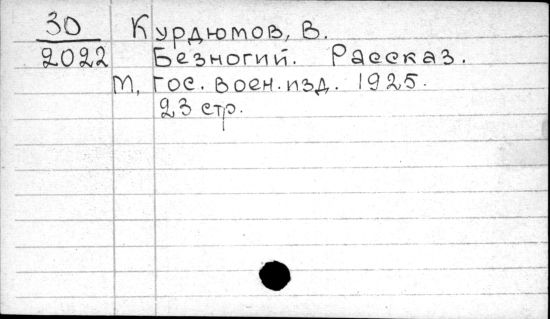 30 Курдюмов, В.
2022 Безногий. Рассказ.
М, Гос. воен. изд. 1925.
23 стр.